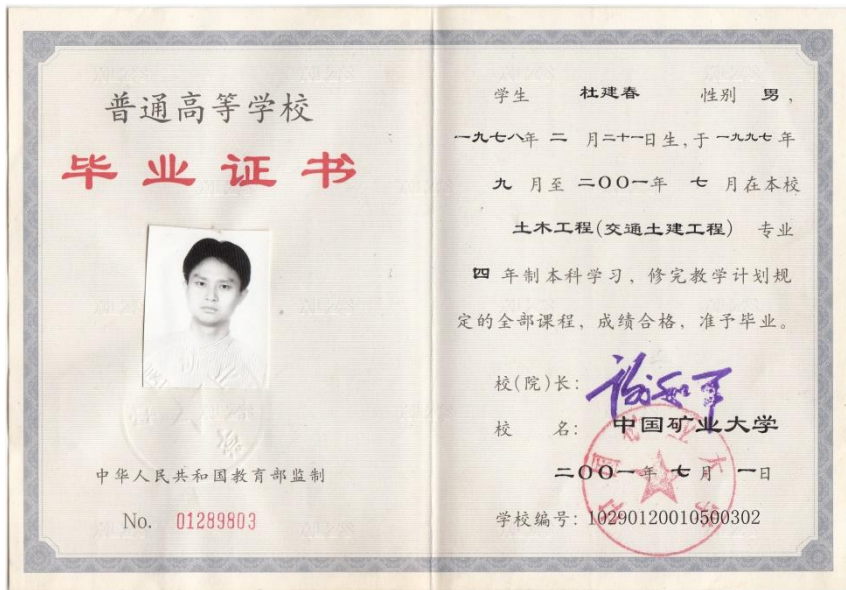 普通高等学校
毕业证书
中华人民共和国教育部监制
No. 01289803
学生 杜建春 性别 男，
一九七八年 二 月二十一日生，于 一九九七 年
九 月至 二〇〇一年 七 月在本校
土木工程(交通土建工程) 专业
四 年制本科学习，修完教学计划规
定的全部课程，成绩合格，准予毕业。
校(院)长：
校 名： 中国矿业大学
二〇〇一年 七 月 一日
学校编号：10290120010500302
中国矿业大学